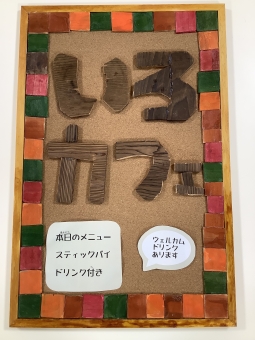 いろ
カフェ
本日のメニュー
スティックパイ
ドリンク付き
ウェルカム
ドリンク
あります